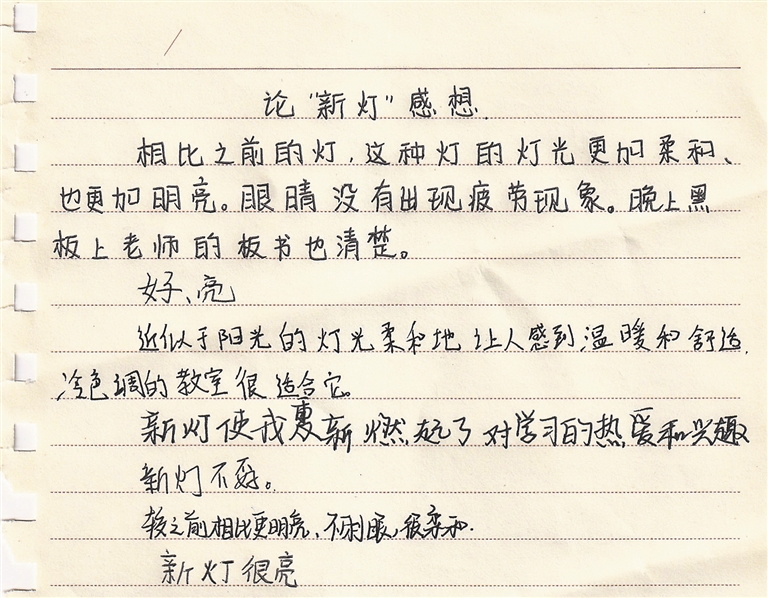 论“新灯”感想.
相比之前的灯,这种灯的灯光更加柔和、
也更加明亮。眼睛没有出现疲劳现象。晚上黑
板上老师的板书也清楚。
好、亮
近似于阳光的灯光柔和地让人感到温暖和舒适,
冷色调的教室很适合它。
新灯使我重新燃起了对学习的热爱和兴趣
新灯不好。
较之前相比更明亮、不刺眼,很柔和.
新灯很亮